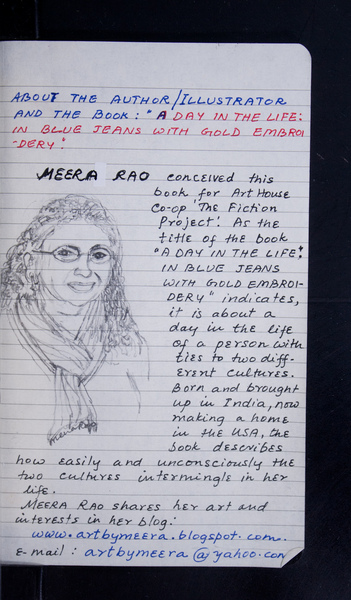 ABOUT THE AUTHOR/ILLUSTRATOR
AND THE BOOK: "A DAY IN THE LIFE:
IN BLUE JEANS WITH GOLD EMBROI
-DERY".
MEERA RAO conceived this
book for Art House
Co-op 'The Fiction
Project'. As the
title of the book
"A DAY IN THE LIFE:
IN BLUE JEANS
WITH GOLD EMBROI-
DERY" indicates,
it is about a
day in the life
of a person with
ties to two diff-
erent cultures.
Born and brought
up in India, now
making a home
in the USA, the
book describes
how easily and unconsciously the
two cultures intermingle in her
life.
MEERA RAO shares her art and
interests in her blog:
www.artbymeera.blogspot.com.
e-mail: artbymeera@yahoo.com
Meera Rao